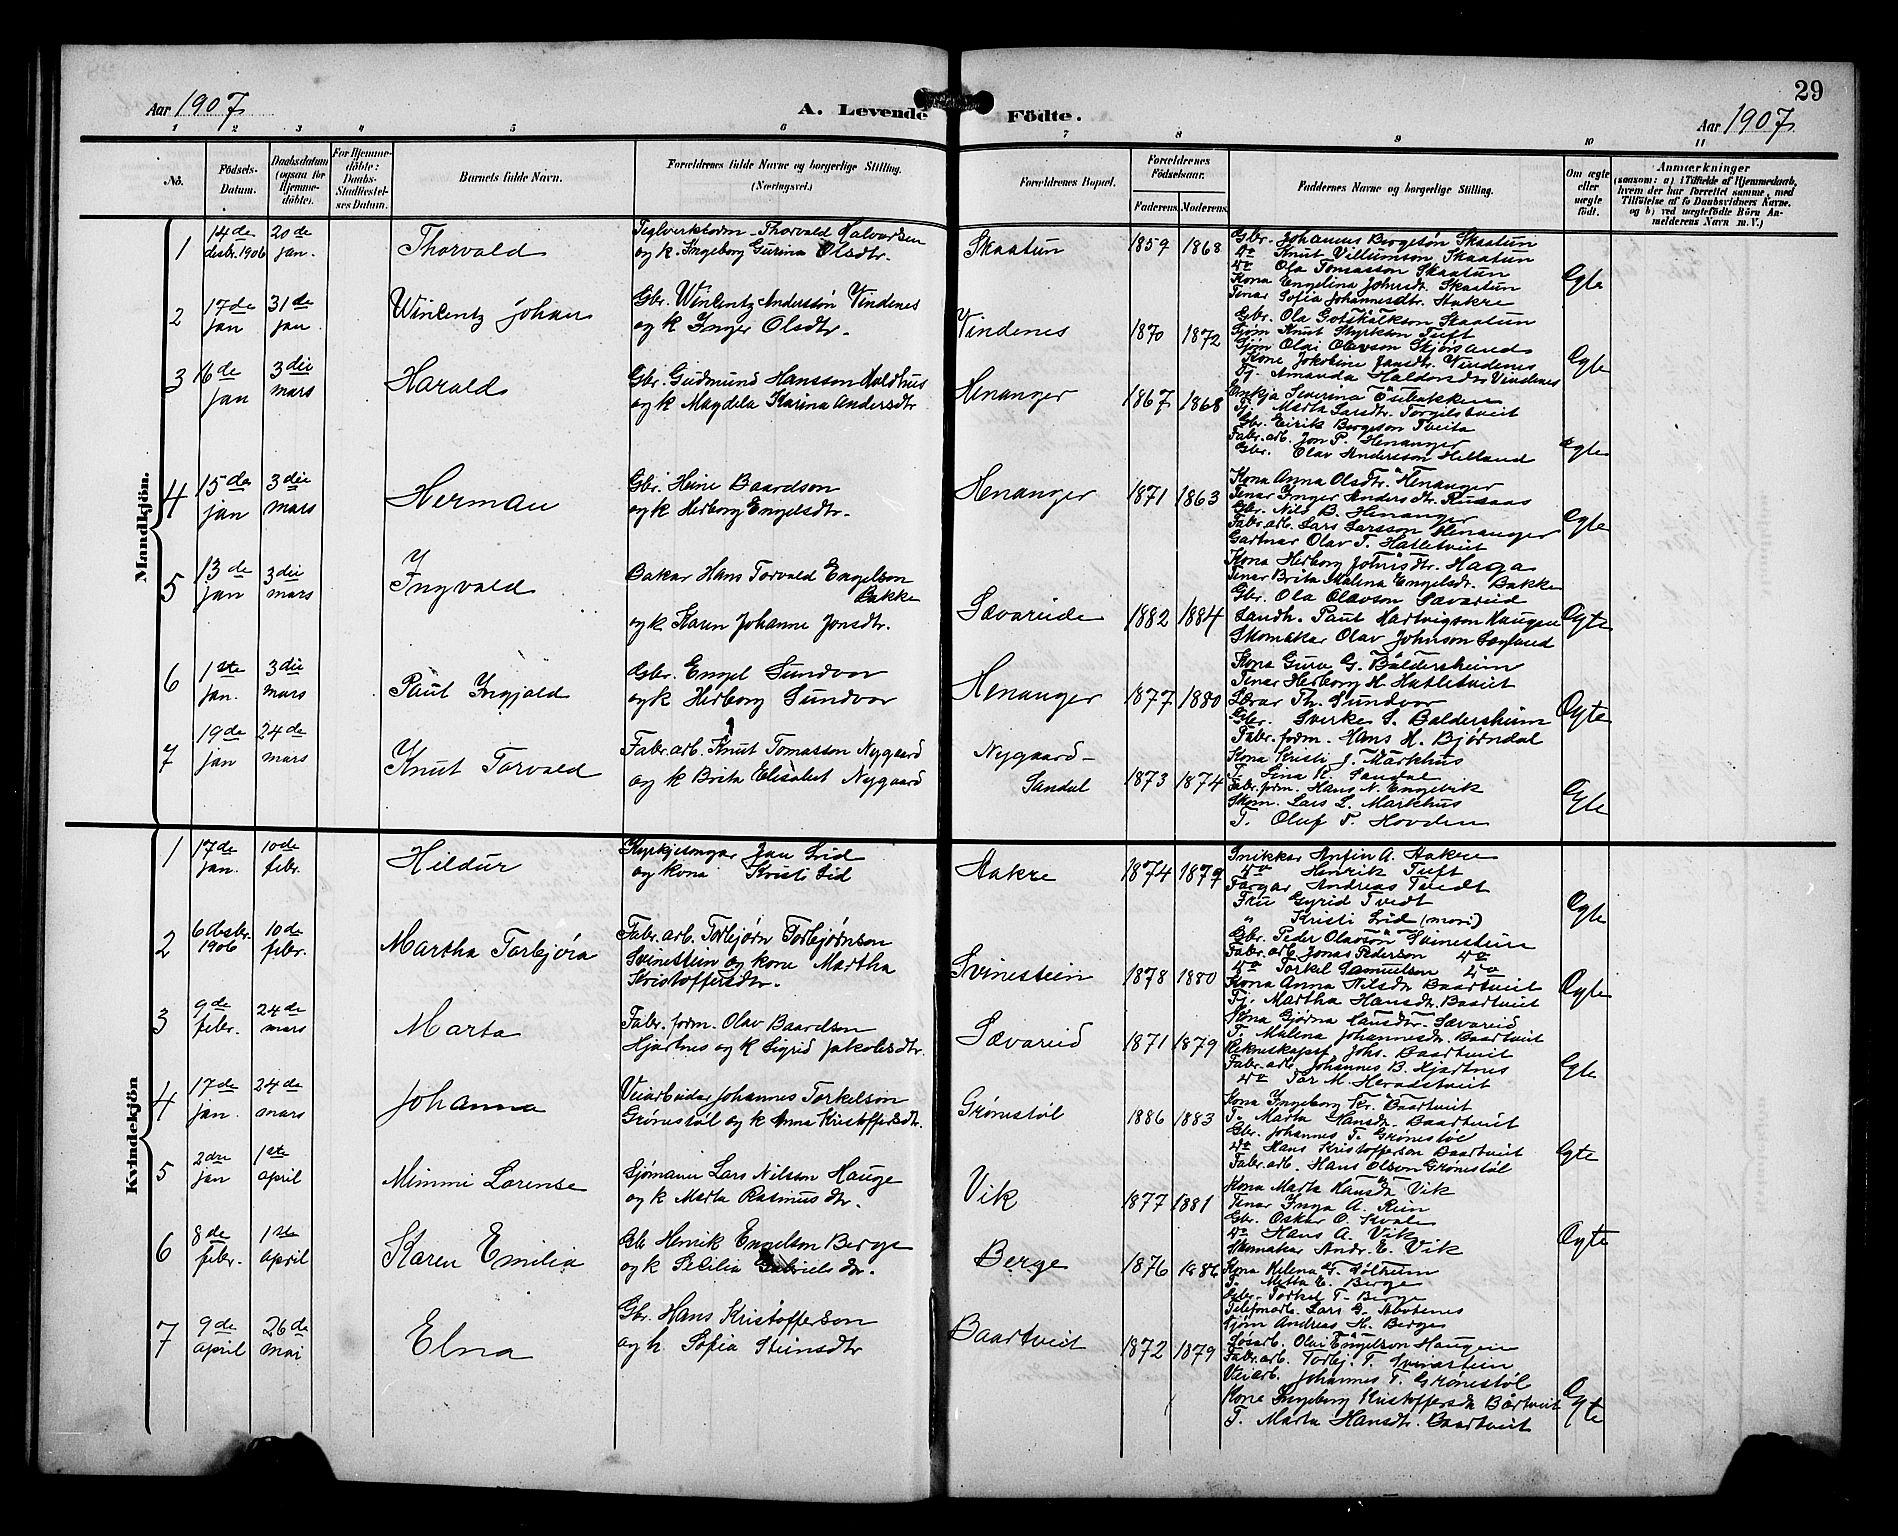 29
Aar 1907
A. Levende Födte.
Aar 1907
1 2 3 4 5 6 7 8 9 10 11
No.
Födsels-Datum.
Daabsdatum (ogsaa for Hjemmedöbte).
For Hjemmedöbte: Daabs-Stadfæstelses Datum.
Barnets fulde Navn.
Forældrenes fulde Navne og borgerlige Stilling. (Næringsvei.)
Forældrenes Bopæl.
Forældrenes Födselsaar.
Faderens. Moderens.
Faddernes Navne og borgerlige Stilling.
Om ægte eller uægte födt.
Anmærkninger
(saasom: a) i Tilfælde af Hjemmedaab, hvem der har forrettet samme, med Tilföielse af to Daabsvidners Navne, og b) ved uægtefödte Börn Anmelderens Navn m. V.)
Mandkjön.
1 14de desbr. 1906 20de jan. Thorvald
Teglverksform. Thorvald Halvorsen
og k. Ingeborg Gurina Olsdtr.
Skaatun 1859 1868
Gbr. Johannes Bergesøn Skaatun
do Knut Villumson Skaatun
do Ola Tomasson Skaatun
Kona Engelina Johnsdr. Skaatun
Tenar Sofia Johannesdtr. Hakre
Egte
2 17de jan 31de jan. Wincentz Johan
Gbr. Wincentz Anderssøn Vindenes
og k Inger Olsdtr.
Vindenes 1870 1872
Gbr. Ola Gotskalkson Skaatun
Sjøm Knut Styrkson Tuft
Sjøm Olai Olavson Skjørsand
Kone Jokobine Jansdt. Vindenes
Tj. Amanda Haldorsdr Vindenes
Egte
3 16de jan 3die mars Harald
Gbr. Gudmund Hansson Moldhus
og k Magdela Karina Andersdtr
Henanger 1867 1868
Enkja Severina Osebakken
Tj. Marta Larsdtr. Torgilstveit
Gbr. Eirik Bergeson Tveita
Fabr. arb. Jon P. Henanger
Gbr. Olav Andersson Helland
Egte
4 15de jan 3die mars Herman
Gbr. Heine Baardson
og k Herborg Engelsdtr.
Henanger 1871 1863
Kona Anna Olsdtr. Henanger
Tenar Inger Andersdtr. Rusaas
Gbr. Nils B. Henanger
Fabr. arb. Lars Larsson Henanger
Gartnar Olav T. Hatletveit
Egte
5 13de jan 3die mars Ingvald
Bakar Hans Torvald Engelson
Bakke
og k Karen Johanne Jonsdtr.
Sævareide 1882 1884
Kona Herborg Johnsdtr. Haga
Tenar Brita Malena Engelsdr. Bakke
Gbr. Ola Olavson Sævareid
Landh. Paul Hartvigson Haugen
Skomakar Olav Johnson Sæland
Egte
6 1ste jan. 3die mars Paul Ingjald
Gbr. Engel Sundvor
og k Herborg Sundvor
Henanger 1877 1880
Kona Guro G. Baldersheim
Tenar Herborg H. Hatletveit
Lærar Th. Sundvor
Gbr. Sverke S. Baldersheim
Fabr. form. Hans H. Bjørndal
Egte
7 19de jan 24de mars Knut Torvald
Fabr. arb. Knut Tomasson Nygaard
og k Brita Elisabet Nygaard
Nygaard-
Sandal 1873 1874
Kona Kristi J. Markhus
T. Lina K. Sandal
Fabr. form. Hans N. Engevik
Skom. Lars L. Markhus
T. Oluf T. Hovden
Egte
Kvindekjön
1 17de jan. 10de febr. Hildur
Kyrkjesongar Jan Lid
og kona Kristi Lid
Hakre 1874 1879
Snikkar Anfin A. Hakre
do Henrik Tuft
Fargar Andreas Tvedt
Fru Gyrid Tvedt
" Kristi Lid (mori)
Egte
2 6 desbr. 1906 10de febr. Martha Torbjøra
Fabr. arb. Torbjørn Torbjørnson
Svinestein og kone Martha
Kristoffersdtr.
Svinestein 1878 1880
Gbr. Peder Olavson Svinestein
Fabr. arb. Jonas Pederson do
do Torkel Samuelsen do
Kona Anna Nilsdr Baartveit
Tj. Martha Hansdt. Baartveit
Egte
3 9de febr. 24de mars Marta
Fabr. form. Olav Baardson
Hjartnes og k Sigrid Jakobsdtr.
Sævareid 1871 1879
Kona Gjørna Hansdtr. Sævareid
T. Malena Johannesdt. Baartveit
Rekneskapsf. Johs. Baartveit
Fabr. arb. Johannes B. Hjartnes
do Tor M. Heradstveit
Egte
4 17de jan. 24de mars Johanna
Veiarbeidar Johannes Torkelson
Grønestøl og k Anna Kristoffersdtr.
Grønestøl 1886 1883
Kona Ingeborg Kr. Baartveit
T. Marta Hansdt. Baartveit
Gbr. Johannes T. Grønestøl
do Hans Kristofferson Baartveit
Fabr. arb. Hans Olson Grønestøl
Egte
5 2dre jan 1ste april Mimmi Lorense
Sjømann Lars Nilsson Hauge
og k Marta Rasmusdtr.
Vik 1877 1881
Kona Marta Hansdt. Vik
Tenar Inga A. Rein
Gbr. Oskar O. Kvale
do Hans A. Vik
Skomakar Andr. E. Vik
Egte
6 8de febr. 1ste april Karen Emilia
Gb Henrik Engelson Berge
og k Sesilia Gabrielsdtr.
Berge 1876 1886
Kona Helena T. Solheim
T. Metta E. Berge
Gbr. Torkel T. Berge
Telefonarb. Lars G. Abotenes
Sjøm Andreas H. Berge
7 9de april 26de mai Elna
Gbr. Hans Kristofferson
og k Sofia Steinsdtr
Baartveit 1872 1879
Olai Engelson Haugen
Fabr. arb. Torbj. T. Svinastein
Veiarb. Johannes T. Grønestøl
Kona Ingeborg Kristoffersdr Bårtveit
T. Marta Hansdtr. Baartveit
Egte